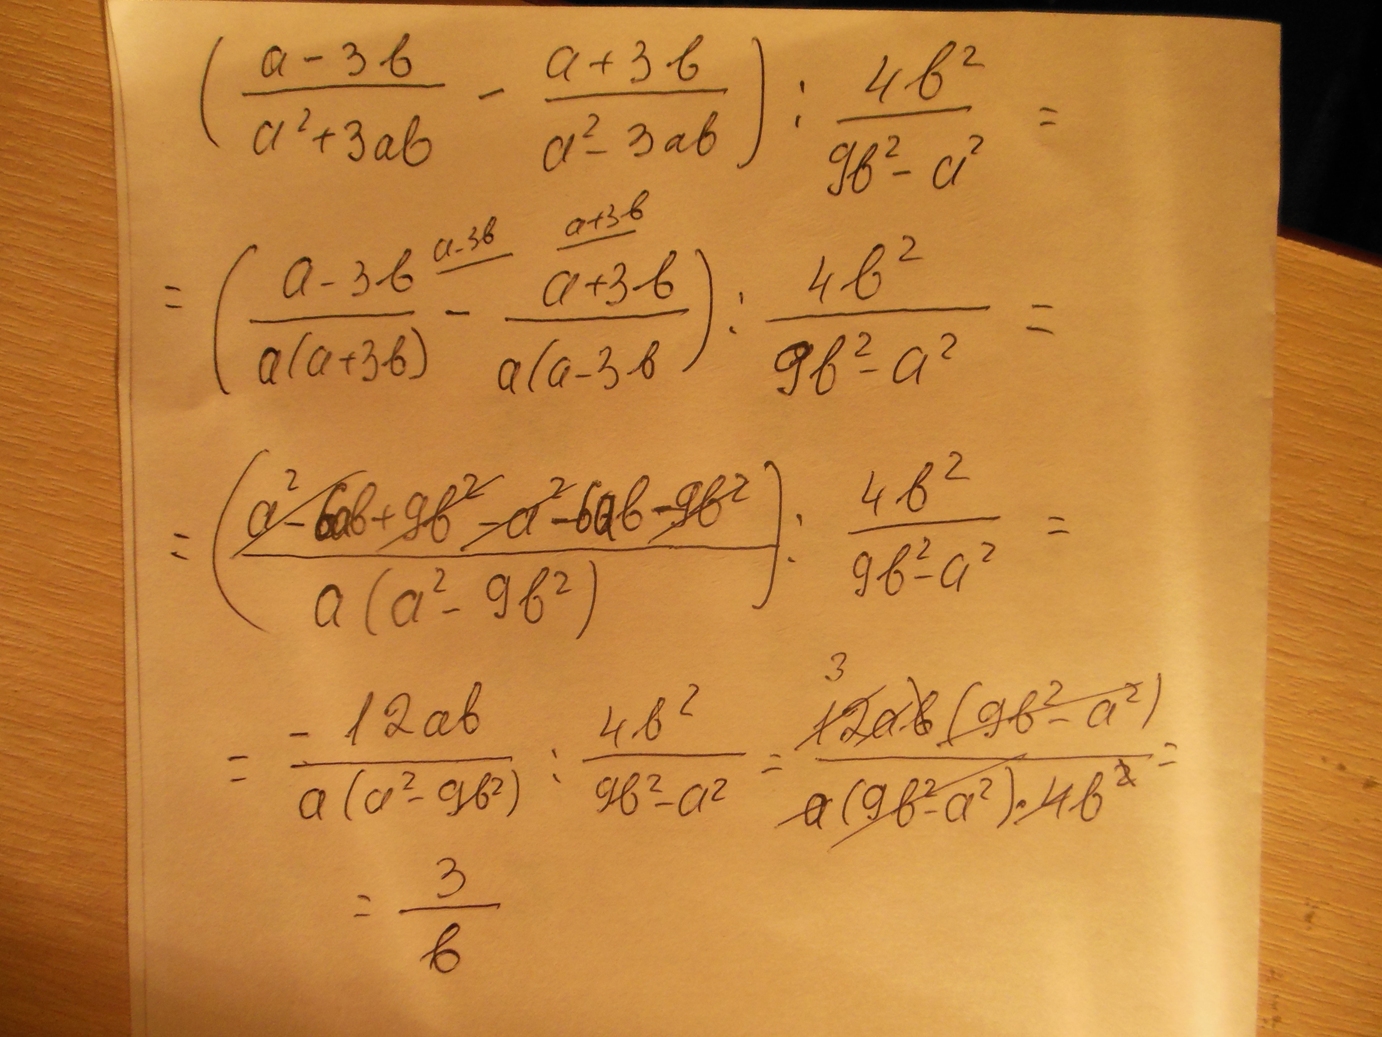 ( (a - 3b)/(a² + 3ab) - (a + 3b)/(a² - 3ab) ) : 4b²/(9b² - a²) =
= ( (a - 3b)/(a(a + 3b)) ^(a - 3b) - (a + 3b)/(a(a - 3b) ^(a + 3b) ) : 4b²/(9b² - a²) =
= ( (a² - 6ab + 9b² - a² - 6ab - 9b²)/(a(a² - 9b²)) ) : 4b²/(9b² - a²) =
= - 12ab/(a(a² - 9b²)) : 4b²/(9b² - a²) = 3 12ab(9b² - a²)/(a(9b² - a²) · 4b²) =
= 3/b